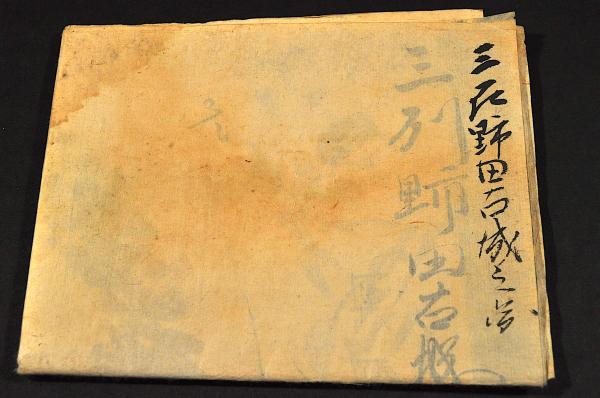 三州野田古城之図
三列野田古城